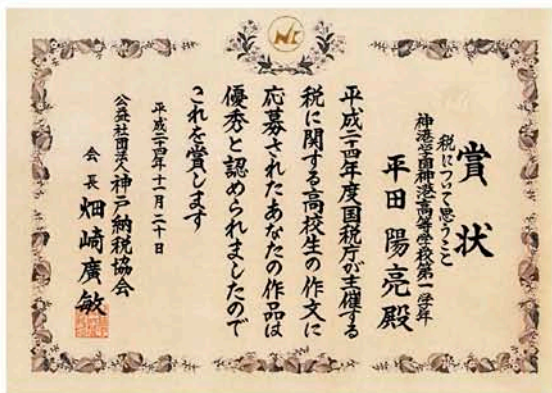 賞状
税について思うこと
神港学園神港高等学校第一学年
平田陽亮殿
平成二十四年度国税庁が主催する
税に関する高校生の作文に
応募されたあなたの作品は
優秀と認められましたので
これを賞します
平成二十四年十一月二十日
公益社団法人神戸納税協会
会長 畑崎廣敏